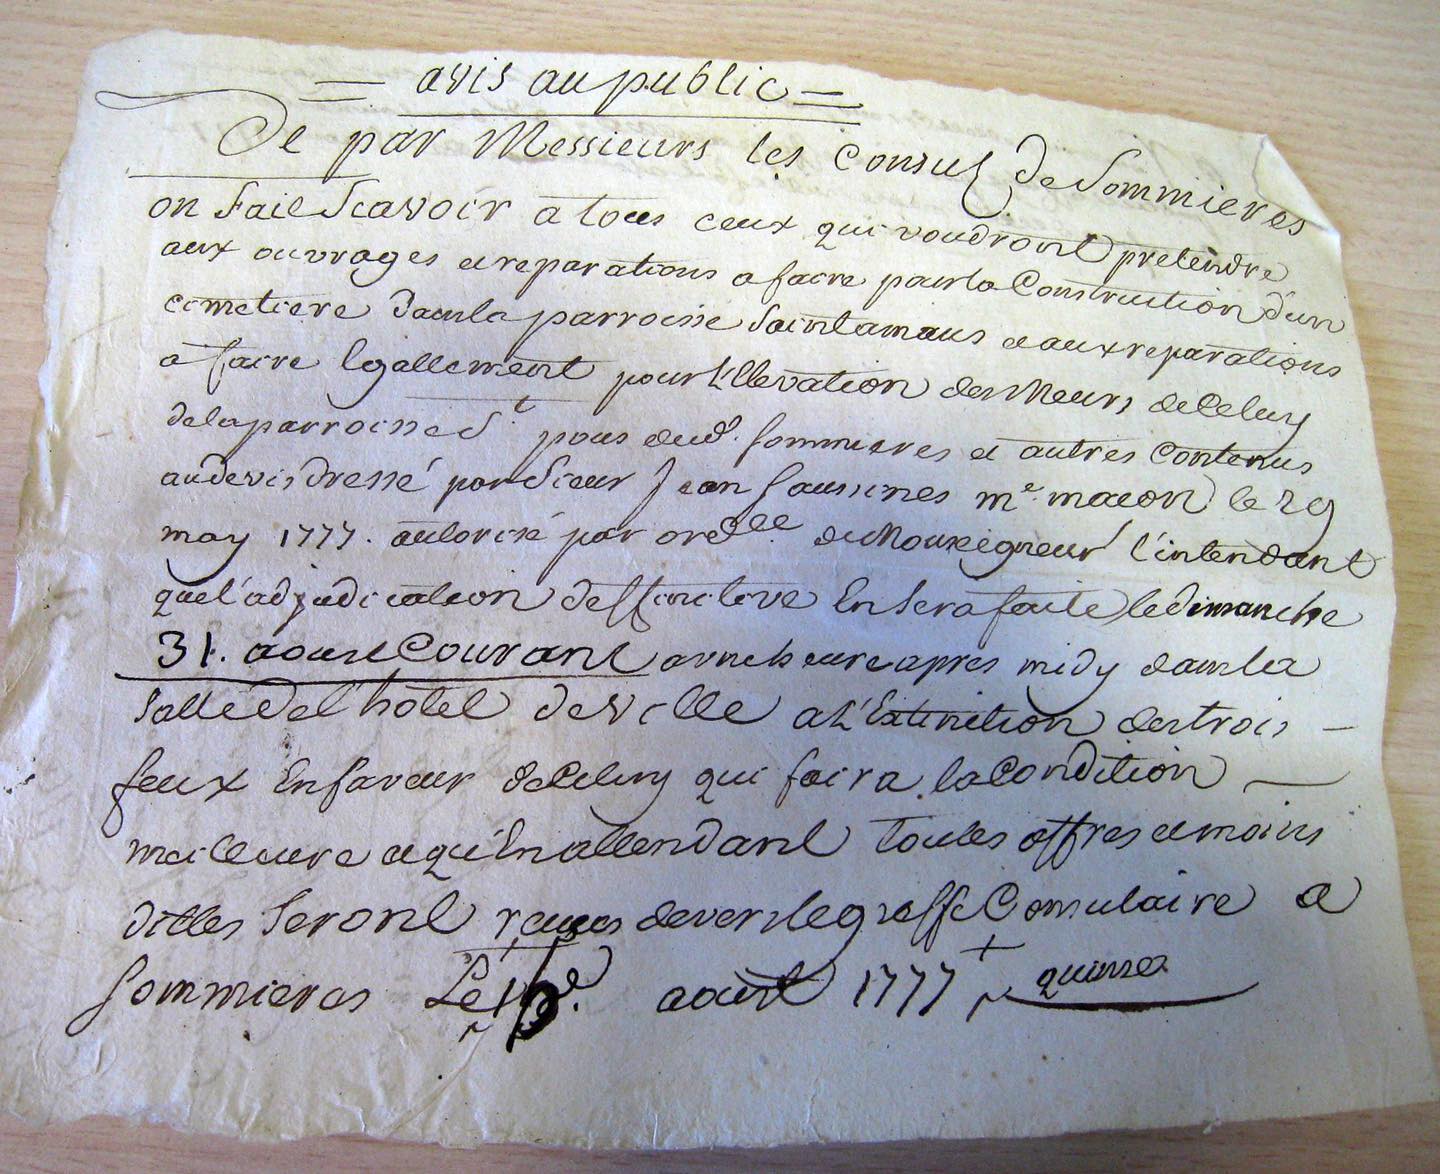 = avis au public =
De par Messieurs les Consuls de Sommieres
on fait Scavoir a tous ceux qui voudront pretendre
aux ouvrages et reparations a faire pour la Construction d'un
cimetiere dans la parroisse Saint amans et aux reparations
a faire Egallement pour L'Ellevation des Meurs de Celuy
de la parroisse St pons dud. Sommieres et autres Contenus
au devis dressé par Sieur Jean Saussines me. macon le 29
may 1777. autorisé par ordce. de Monseigneur l'intendant
que l'adjudication deffinitive En sera faite le dimanche
31. aoust Courant a une heure apres midy dans la
Salle de l'hotel de Ville a L'Extinction des trois -
feux En faveur de Celuy qui faira la Condition
meilleure et qu'En attendant toutes offres et moins
dittes Seront reçues devers le greffe Consulaire a
Sommieres Le 15e. aoust 1777 quinze